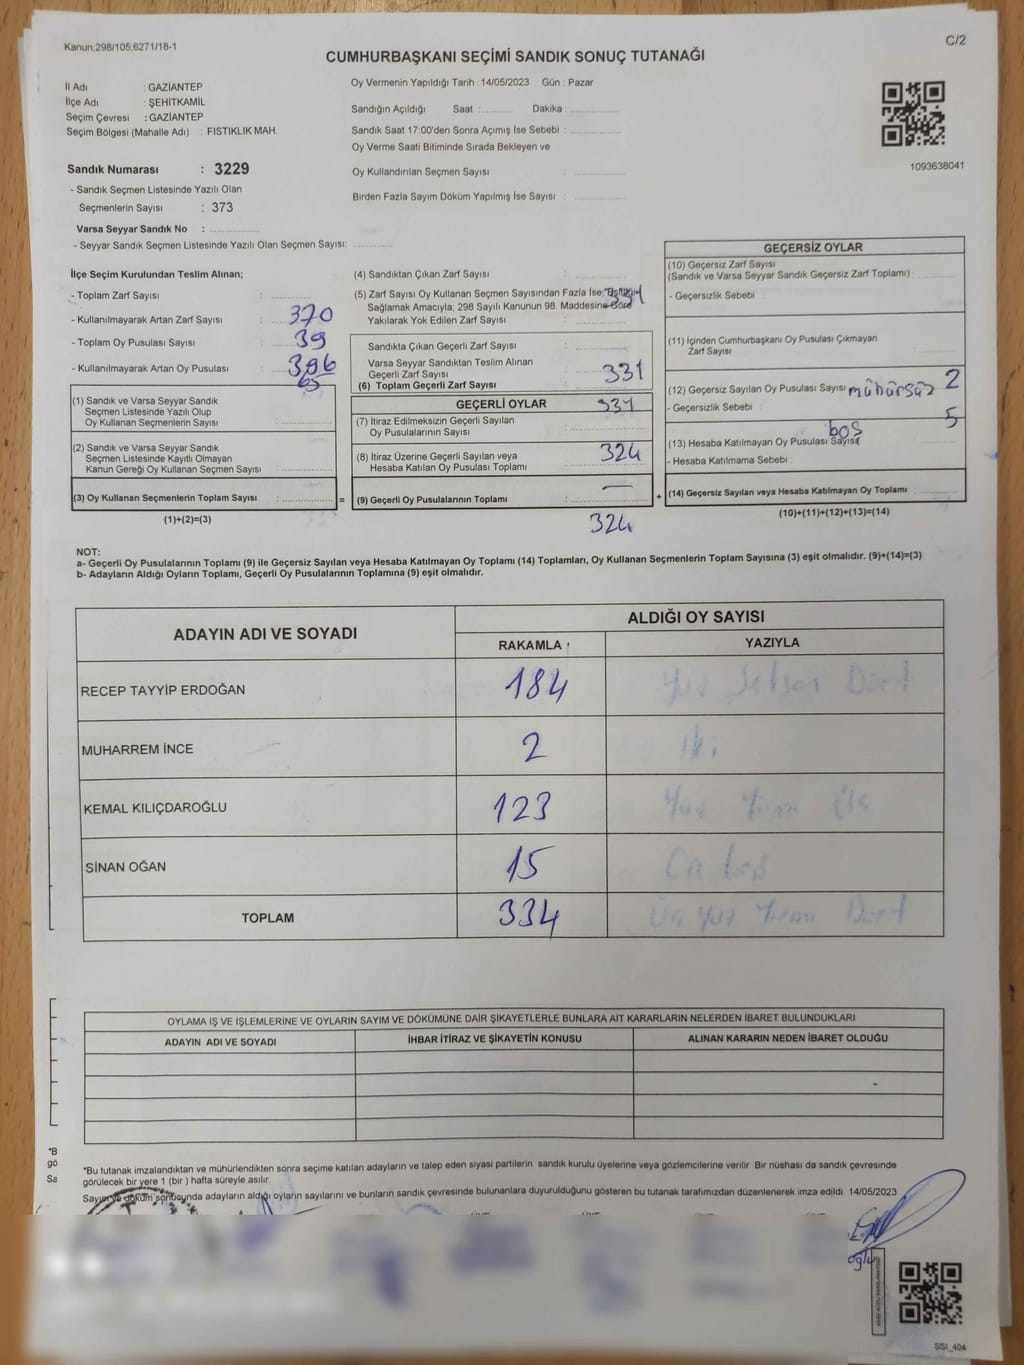 Kanun:298/105;6271/18-1
C/2
CUMHURBAŞKANI SEÇİMİ SANDIK SONUÇ TUTANAĞI
İl Adı : GAZİANTEP
İlçe Adı : ŞEHİTKAMİL
Seçim Çevresi : GAZİANTEP
Seçim Bölgesi (Mahalle Adı) : FISTIKLIK MAH.
Sandık Numarası : 3229
- Sandık Seçmen Listesinde Yazılı Olan
Seçmenlerin Sayısı : 373
Varsa Seyyar Sandık No :
- Seyyar Sandık Seçmen Listesinde Yazılı Olan Seçmen Sayısı:
Oy Vermenin Yapıldığı Tarih : 14/05/2023 Gün : Pazar
Sandığın Açıldığı Saat : Dakika :
Sandık Saat 17:00'den Sonra Açımış İse Sebebi :
Oy Verme Saati Bitiminde Sırada Bekleyen ve
Oy Kullandırılan Seçmen Sayısı :
Birden Fazla Sayım Döküm Yapılmış İse Sayısı :
1093638041
İlçe Seçim Kurulundan Teslim Alınan;
- Toplam Zarf Sayısı :
- Kullanılmayarak Artan Zarf Sayısı : 370
- Toplam Oy Pusulası Sayısı : 39
- Kullanılmayarak Artan Oy Pusulası : 396
65
(1) Sandık ve Varsa Seyyar Sandık
Seçmen Listesinde Yazılı Olup
Oy Kullanan Seçmenlerin Sayısı :
(2) Sandık ve Varsa Seyyar Sandık
Seçmen Listesinde Kayıtlı Olmayan
Kanun Gereği Oy Kullanan Seçmen Sayısı :
(3) Oy Kullanan Seçmenlerin Toplam Sayısı :
(1)+(2)=(3)
=
(4) Sandıktan Çıkan Zarf Sayısı :
(5) Zarf Sayısı Oy Kullanan Seçmen Sayısından Fazla İse; 331
Sağlamak Amacıyla; 298 Sayılı Kanunun 98. Maddesine Göre
Yakılarak Yok Edilen Zarf Sayısı :
Sandıkta Çıkan Geçerli Zarf Sayısı :
Varsa Seyyar Sandıktan Teslim Alınan
Geçerli Zarf Sayısı : 331
(6) Toplam Geçerli Zarf Sayısı :
GEÇERLİ OYLAR 331
(7) İtiraz Edilmeksizin Geçerli Sayılan
Oy Pusulalarının Sayısı :
(8) İtiraz Üzerine Geçerli Sayılan veya 324
Hesaba Katılan Oy Pusulası Toplamı :
(9) Geçerli Oy Pusulalarının Toplamı :
324
+
GEÇERSİZ OYLAR
(10) Geçersiz Zarf Sayısı
(Sandık ve Varsa Seyyar Sandık Geçersiz Zarf Toplamı) :
- Geçersizlik Sebebi :
(11) İçinden Cumhurbaşkanı Oy Pusulası Çıkmayan
Zarf Sayısı :
(12) Geçersiz Sayılan Oy Pusulası Sayısı mühürsüz 2
- Geçersizlik Sebebi :
boş 5
(13) Hesaba Katılmayan Oy Pusulası Sayısı
- Hesaba Katılmama Sebebi :
(14) Geçersiz Sayılan veya Hesaba Katılmayan Oy Toplamı :
(10)+(11)+(12)+(13)=(14)
NOT:
a- Geçerli Oy Pusulalarının Toplamı (9) ile Geçersiz Sayılan veya Hesaba Katılmayan Oy Toplamı (14) Toplamları, Oy Kullanan Seçmenlerin Toplam Sayısına (3) eşit olmalıdır. (9)+(14)=(3)
b- Adayların Aldığı Oyların Toplamı, Geçerli Oy Pusulalarının Toplamına (9) eşit olmalıdır.
ADAYIN ADI VE SOYADI
ALDIĞI OY SAYISI
RAKAMLA
YAZIYLA
RECEP TAYYİP ERDOĞAN 184 Yüz Seksen Dört
MUHARREM İNCE 2 İki
KEMAL KILIÇDAROĞLU 123 Yüz Yirmi Üç
SİNAN OĞAN 15 On beş
TOPLAM 334 Üç yüz Yirmi Dört
OYLAMA İŞ VE İŞLEMLERİNE VE OYLARIN SAYIM VE DÖKÜMÜNE DAİR ŞİKAYETLERLE BUNLARA AİT KARARLARIN NELERDEN İBARET BULUNDUKLARI
ADAYIN ADI VE SOYADI
İHBAR İTİRAZ VE ŞİKAYETİN KONUSU
ALINAN KARARIN NEDEN İBARET OLDUĞU
-
*B
gö
Sa
*Bu tutanak imzalandıktan ve mühürlendikten sonra seçime katılan adayların ve talep eden siyasi partilerin sandık kurulu üyelerine veya gözlemcilerine verilir. Bir nüshası da sandık çevresinde
görülecek bir yere 1 (bir ) hafta süreyle asılır.
Sayım ve döküm sonucunda adayların aldığı oyların sayılarını ve bunların sandık çevresinde bulunanlara duyurulduğunu gösteren bu tutanak tarafımızdan düzenlenerek imza edildi. 14/05/2023
SSI_404